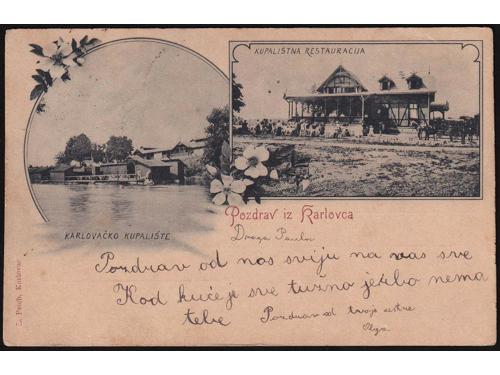 KUPALIŠTNA RESTAURACIJA
KARLOVAČKO KUPALIŠTE
Pozdrav iz Karlovca
Draga Paula
Pozdrav od nas sviju na vas sve
Kod kuće je sve tužno jer bo nema
tebe Pozdrav od tvoje sestre
Olga
Karlovac